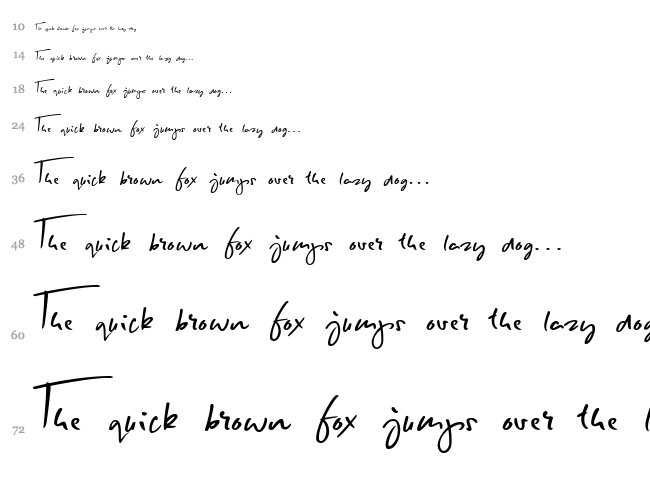 10 The quick brown fox jumps over the lazy dog
14 The quick brown fox jumps over the lazy dog...
18 The quick brown fox jumps over the lazy dog...
24 The quick brown fox jumps over the lazy dog...
36 The quick brown fox jumps over the lazy dog...
48 The quick brown fox jumps over the lazy dog...
60 The quick brown fox jumps over the lazy dog
72 The quick brown fox jumps over the l